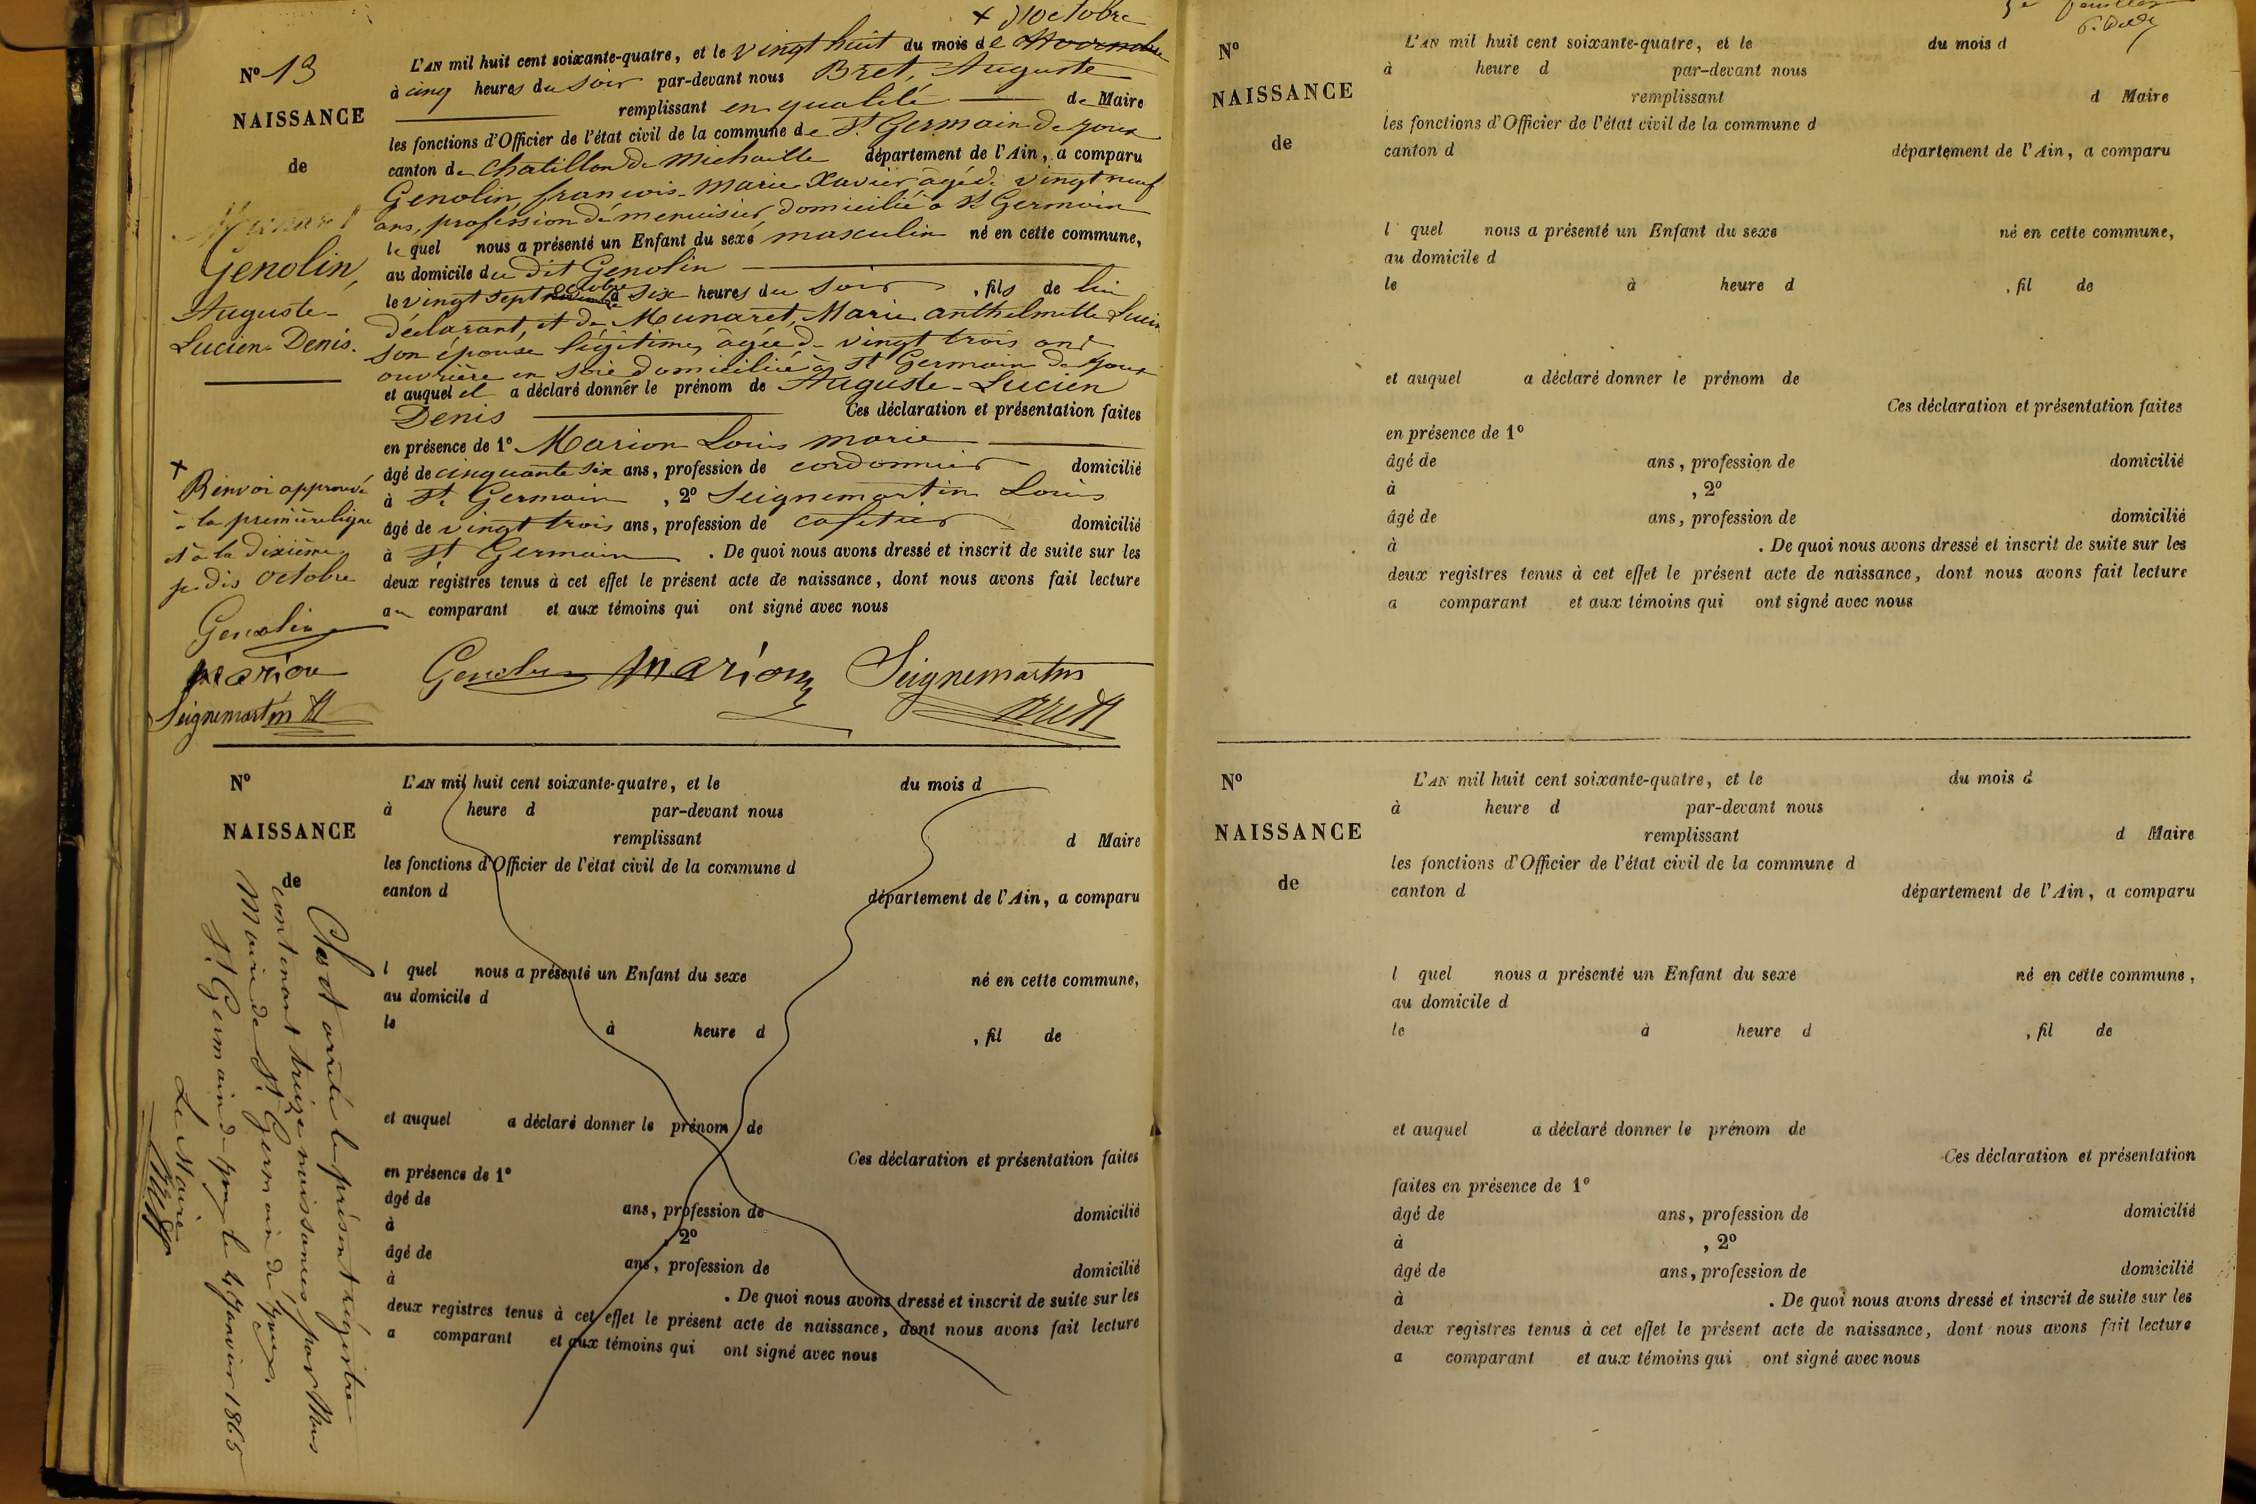 + d'octobre
N° 13
L'AN mil huit cent soixante-quatre, et le vingt huit du mois de novembre
à cinq heures du soir par-devant nous Bret, Auguste
NAISSANCE
remplissant en qualité de Maire
les fonctions d'Officier de l'état civil de la commune de St. Germain de Joux
de
canton de Chatillon de Michaille département de l'Ain, a comparu
Genolin, françois-Marie Xavier âgé de vingt neuf
ans, profession de menuisier, domicilié à St Germain
le quel nous a présenté un Enfant du sexe masculin né en cette commune,
Munaret
Genolin,
Auguste-
Lucien-Denis.
au domicile du dit Genolin
octobre
le vingt sept novembre à six heures du soir, fils de lui
déclarant, et de Munaret, Marie anthelmette Lucie
son épouse légitime, âgée de vingt trois ans
ouvrière en soie domiciliée à St Germain de Joux
et auquel il a déclaré donner le prénom de Auguste-Lucien
Denis Ces déclaration et présentation faites
en présence de 1° Marion Louis marie
âgé de cinquante six ans, profession de cordonnier domicilié
à St. Germain, 2° Seignemartin Louis
âgé de vingt trois ans, profession de cafetier domicilié
à St Germain. De quoi nous avons dressé et inscrit de suite sur les
deux régistres tenus à cet effet le présent acte de naissance, dont nous avons fait lecture
au comparant et aux témoins qui ont signé avec nous
+
Renvoi approuvé
à la première ligne
et à la dixième
je dis octobre
Genolin
marion
Seignemartin
Genolin Marion Seignemartin
Bret
N°
NAISSANCE
de
L'AN mil huit cent soixante-quatre, et le du mois d
à heure d par-devant nous
remplissant d Maire
les fonctions d'Officier de l'état civil de la commune d
canton d département de l'Ain, a comparu
l quel nous a présenté un Enfant du sexe né en cette commune,
au domicile d
le à heure d , fil de
et auquel a déclaré donner le prénom de
Ces déclaration et présentation faites
en présence de 1°
âgé de ans, profession de domicilié
à , 2°
âgé de ans, profession de domicilié
à . De quoi nous avons dressé et inscrit de suite sur les
deux registres tenus à cet effet le présent acte de naissance, dont nous avons fait lecture
a comparant et aux témoins qui ont signé avec nous
Clos et arrêté le présent régistre
contenant treize naissances, par Nous
Maire de St. Germain de Joux.
St. Germain de Joux le 4 Janvier 1865
Le Maire
N°
NAISSANCE
de
L'AN mil huit cent soixante-quatre, et le du mois d
à heure d par-devant nous
remplissant d Maire
les fonctions d'Officier de l'état civil de la commune d
canton d département de l'Ain, a comparu
l quel nous a présenté un Enfant du sexe né en cette commune,
au domicile d
le à heure d , fil de
et auquel a déclaré donner le prénom de
Ces déclaration et présentation faites
en présence de 1°
âgé de ans, profession de domicilié
à , 2°
âgé de ans, profession de domicilié
à . De quoi nous avons dressé et inscrit de suite sur les
deux registres tenus à cet effet le présent acte de naissance, dont nous avons fait lecture
a comparant et aux témoins qui ont signé avec nous
N°
NAISSANCE
de
L'AN mil huit cent soixante-quatre, et le du mois d
à heure d par-devant nous
remplissant d Maire
les fonctions d'Officier de l'état civil de la commune d
canton d département de l'Ain, a comparu
l quel nous a présenté un Enfant du sexe né en cette commune,
au domicile d
le à heure d , fil de
et auquel a déclaré donner le prénom de
Ces déclaration et présentation
faites en présence de 1°
âgé de ans, profession de domicilié
à , 2°
âgé de ans, profession de domicilié
à . De quoi nous avons dressé et inscrit de suite sur les
deux registres tenus à cet effet le présent acte de naissance, dont nous avons fait lecture
a comparant et aux témoins qui ont signé avec nous